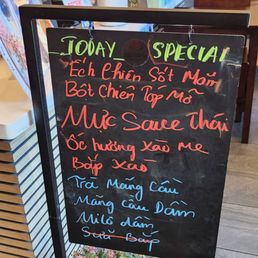 TODAY SPECIAL
Ếch Chiên Sốt Mắm
Bột Chiên Tóp Mỡ
Mực Sauce Thái
Ốc hương xào me
Bắp xào
Trà Mãng Cầu
Mãng Cầu Dầm
Milo dầm
Sữa Bắp